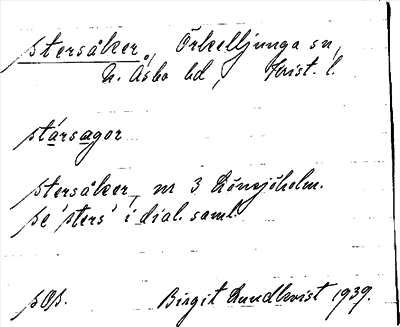 stersåker, Örkelljunga sn,
N. Åsbo hd, Krist. l.
stársagor
stersåker, nr 3 Lönsjöholm.
se 'sters' i dial. saml.
sOs. Birgit Lundkvist 1939.